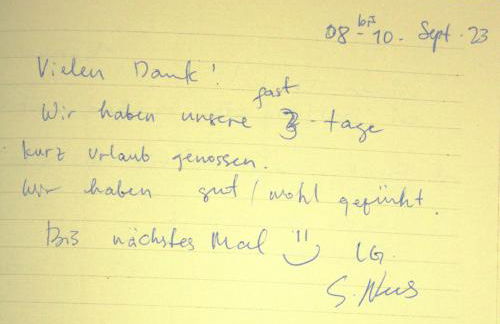 08 bis - 10. Sept. 23
Vielen Dank!
Wir haben unsere fast 3-tage
kurz urlaub genossen.
Wir haben gut/wohl gefühlt.
Bis nächstes Mal LG.
S.